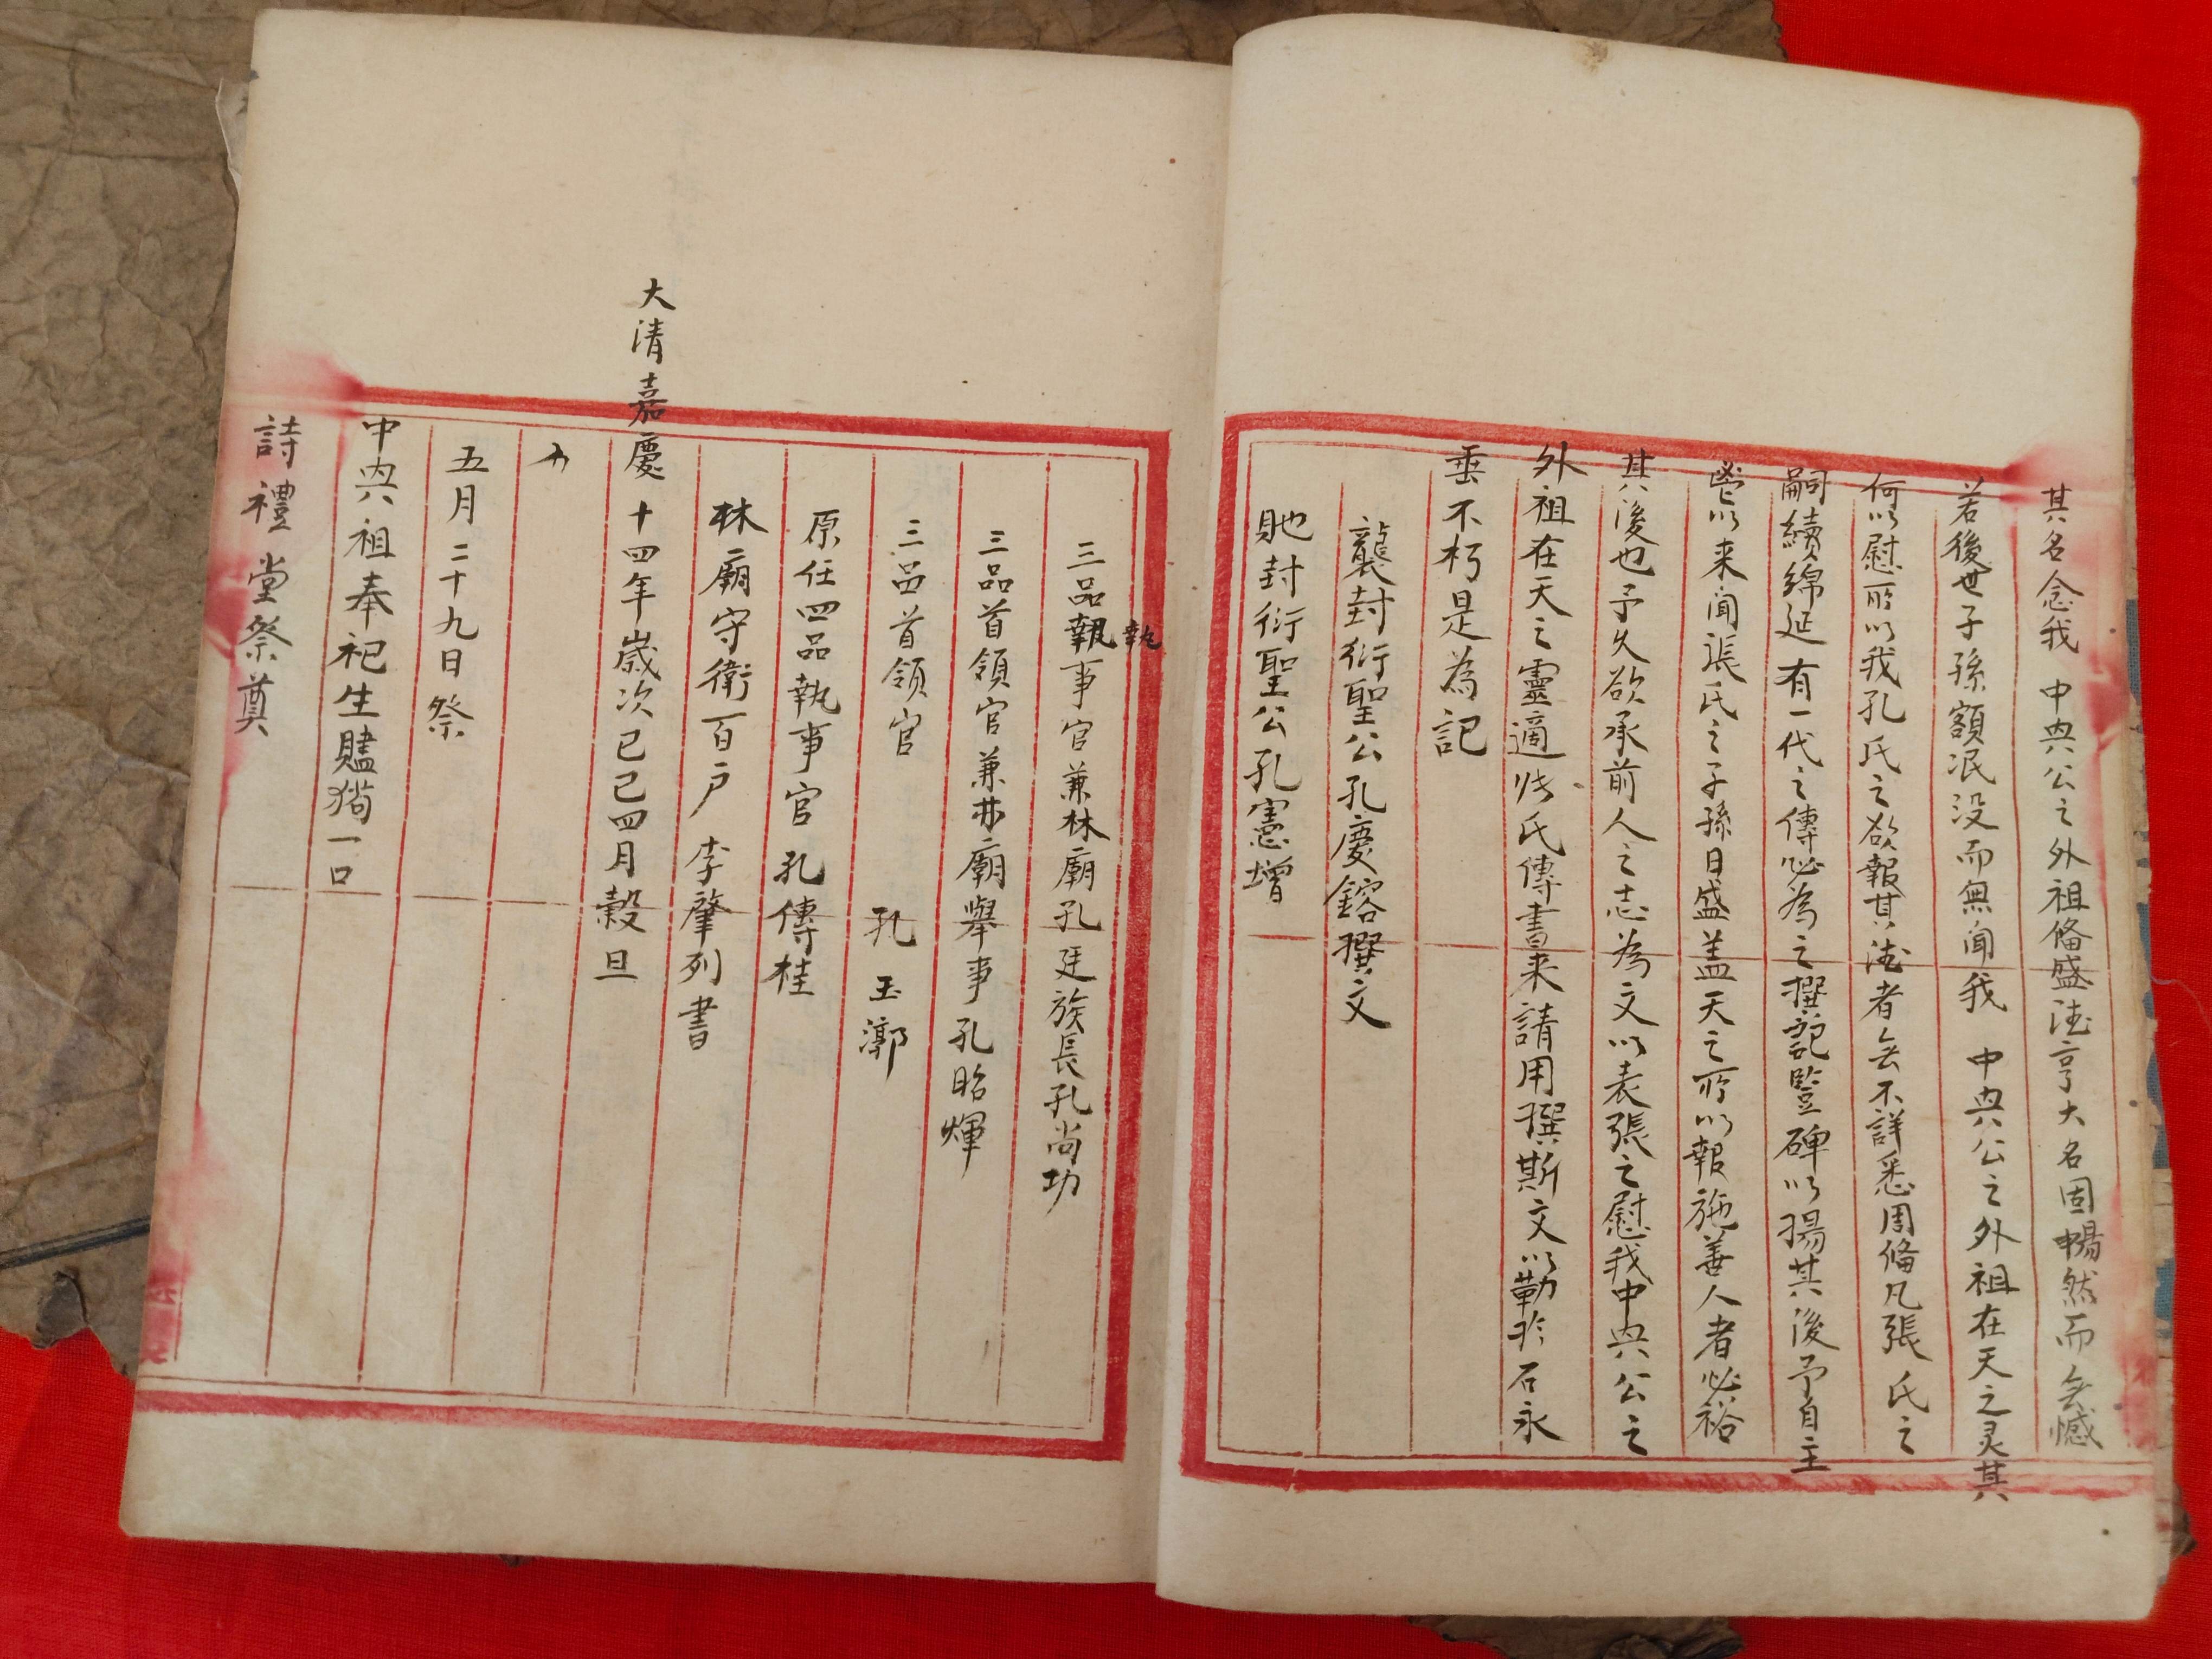 其名念我 中興公之外祖脩盛德亨大名固暢然而無憾
若後世子孫額泯没而無聞我 中興公之外祖在天之灵其
何以慰所以我孔氏之欲報其德者無不詳悉周脩凡張氏之
嗣續綿延有一代之傳必為之撰記豎碑以揚其後予自主
鬯以来闻張氏之子孫日盛盖天之所以報施善人者必裕
其後也予久欲承前人之志為文以表張之慰我中興公之
外祖在天之靈適 氏傳書来請用撰斯文以勒於石永
垂不朽是為記
襲封衍聖公孔慶鎔撰文
貤封衍聖公孔憲增
三品執事官兼林廟孔廷族長孔尚功
執
三品首領官兼林廟舉事孔昭煇
三品首領官 孔玉漷
原任四品執事官孔傳桂
林廟守衛百户李肇列書
大清嘉慶十四年歲次己巳四月穀旦
五月二十九日祭
中興祖奉祀生 猪一口
詩禮堂祭奠